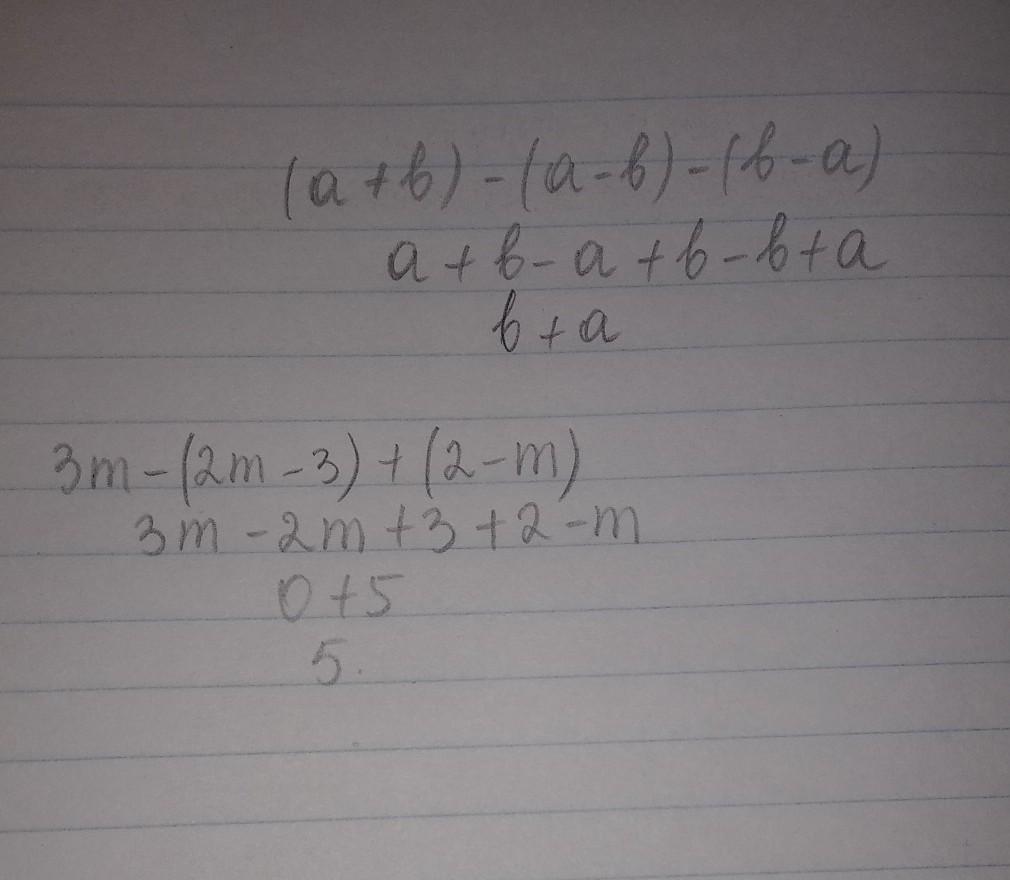 (a+b)-(a-b)-(b-a)
a+b-a+b-b+a
b+a
3m-(2m-3)+(2-m)
3m-2m+3+2-m
0+5
5.